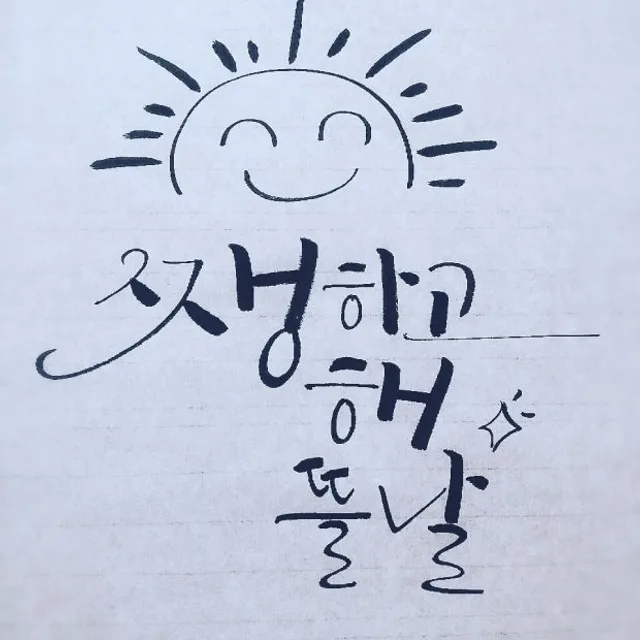 쨍하고
해
뜰 날